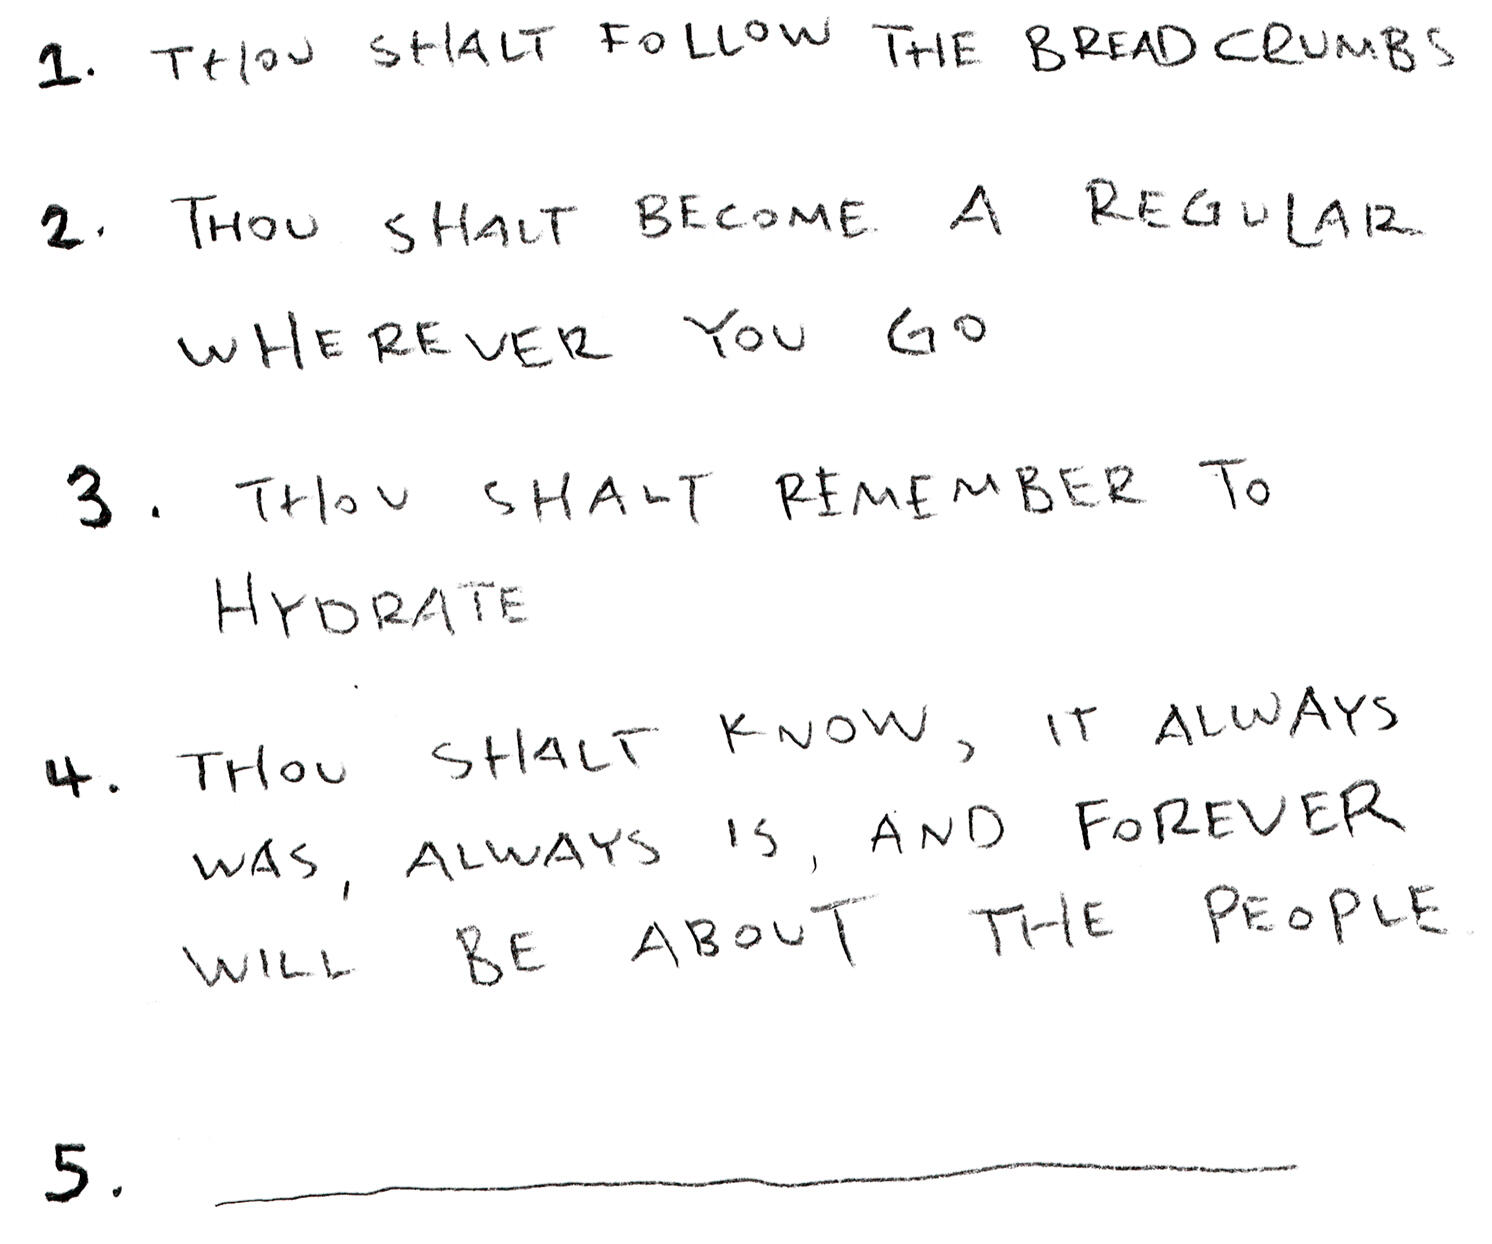 1. THOU SHALT FOLLOW THE BREADCRUMBS
2. THOU SHALT BECOME A REGULAR
WHEREVER YOU GO
3. THOU SHALT REMEMBER TO
HYDRATE
4. THOU SHALT KNOW, IT ALWAYS
WAS, ALWAYS IS, AND FOREVER
WILL BE ABOUT THE PEOPLE
5.